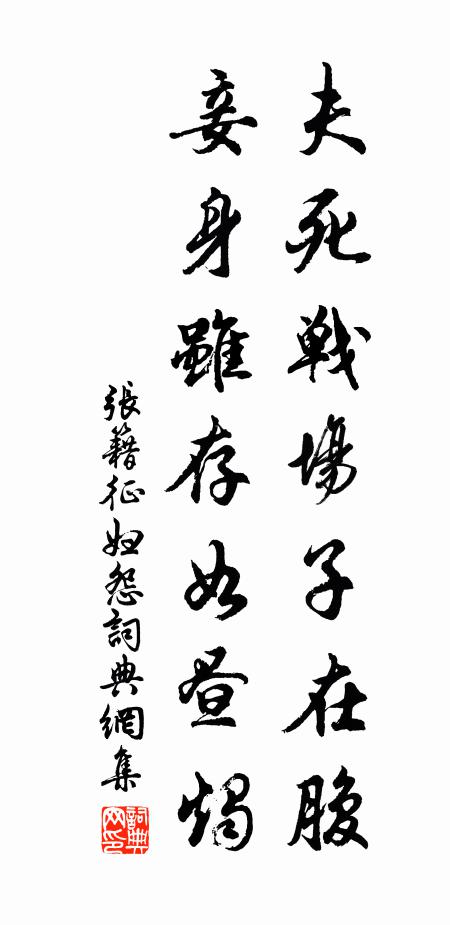 夫死戰場子在腹
妾身雖存如晝燭
張籍征婦怨詞典網集
詞典网印